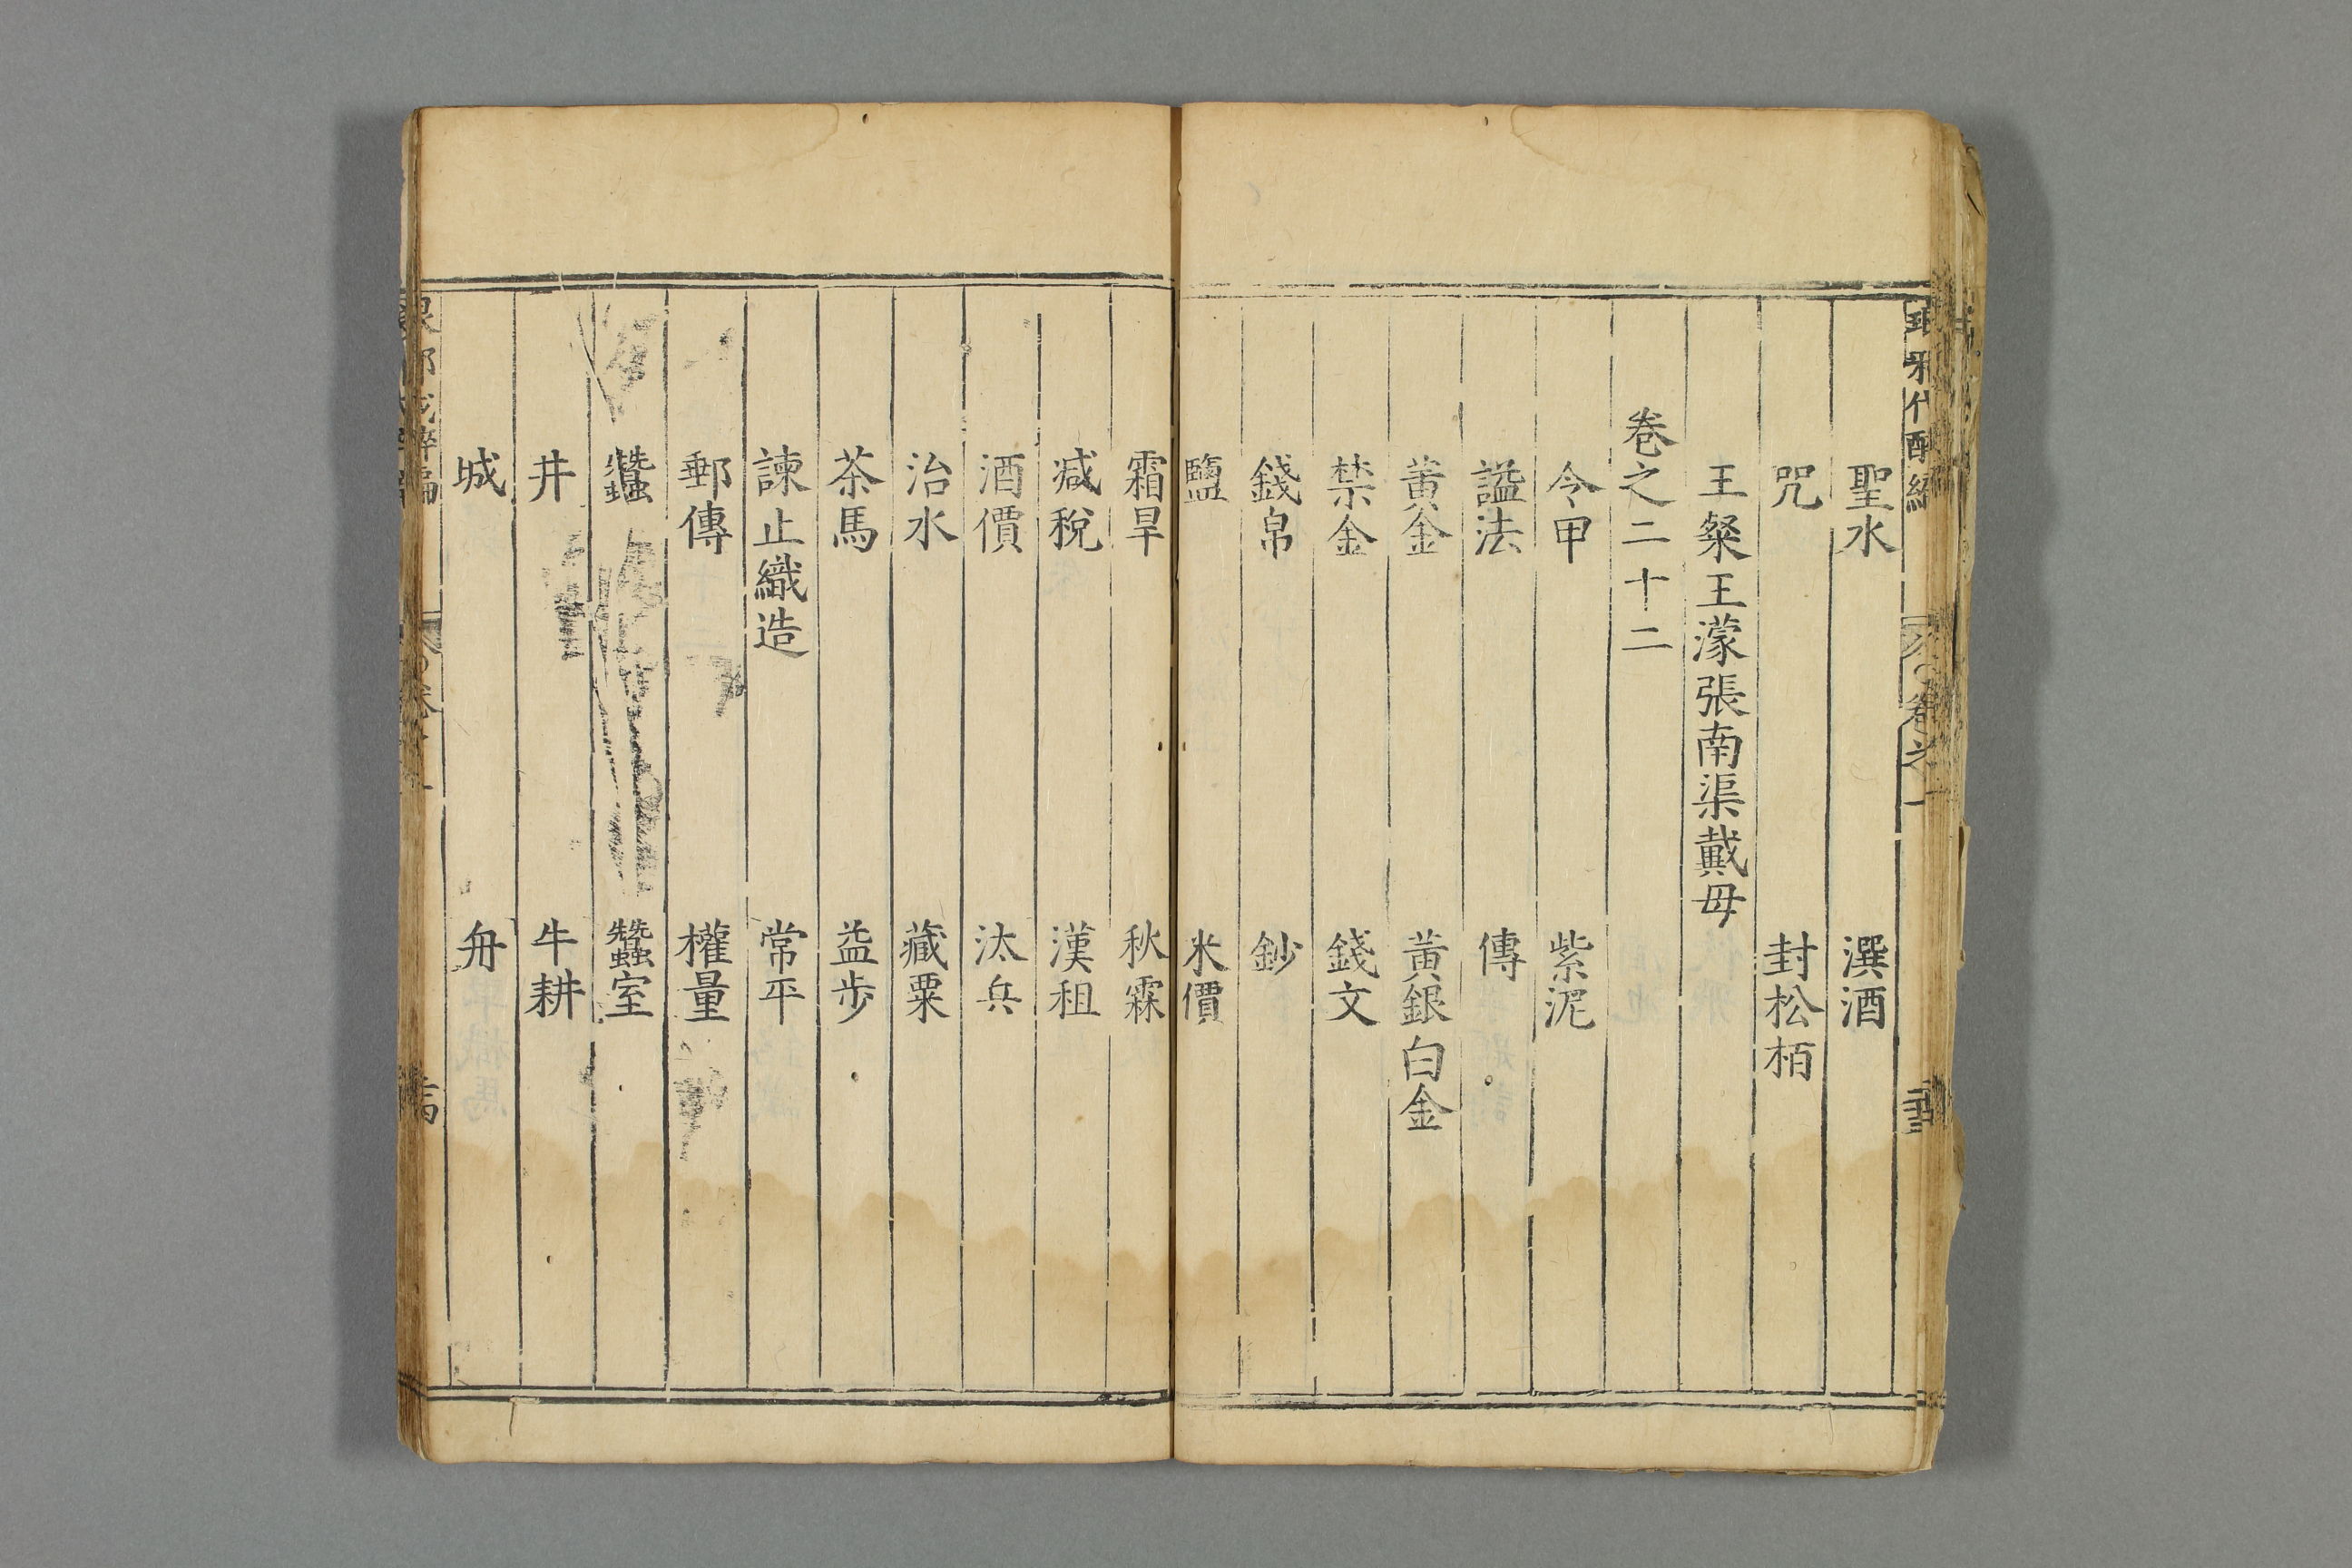 聖水　潠酒
咒　封松栢
王粲王濛張南渠戴毋
卷之二十二
令甲　紫泥
謚法　傳
黃金　黃銀白金
禁金　錢文
錢帛　鈔
鹽　米價
霜旱　秋霖
減稅　漢租
酒價　汰兵
治水　藏粟
茶馬　益步
諫止織造　常平
郵傳　權量
蠶　蠶室
井　牛耕
城　舟